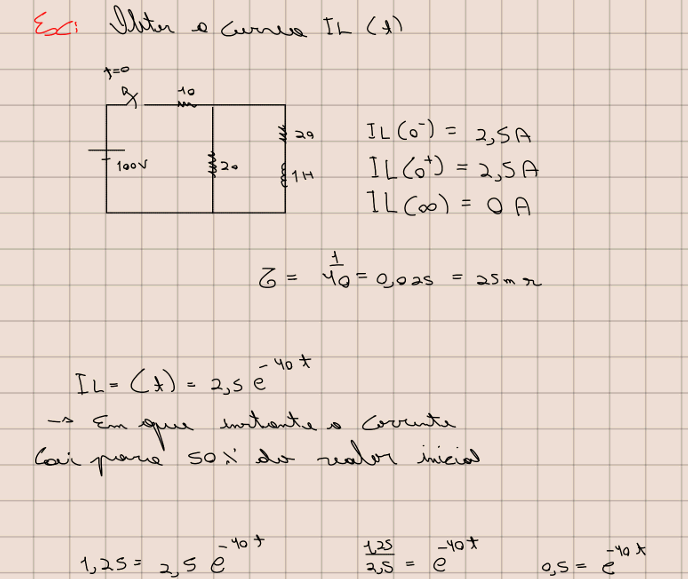 Ex: Obter a curva IL (t)
t=0
10
100V
20
20
1H
IL(0⁻) = 2,5A
IL(0⁺) = 2,5A
IL(∞) = 0 A
τ = 1/40 = 0,025 = 25m s
IL = (t) = 2,5 e^-40t
→ Em que instante a corrente
Cai para 50% do valor inicial
1,25 = 2,5 e^-40t   1,25/2,5 = e^-40t   0,5 = e^-40t